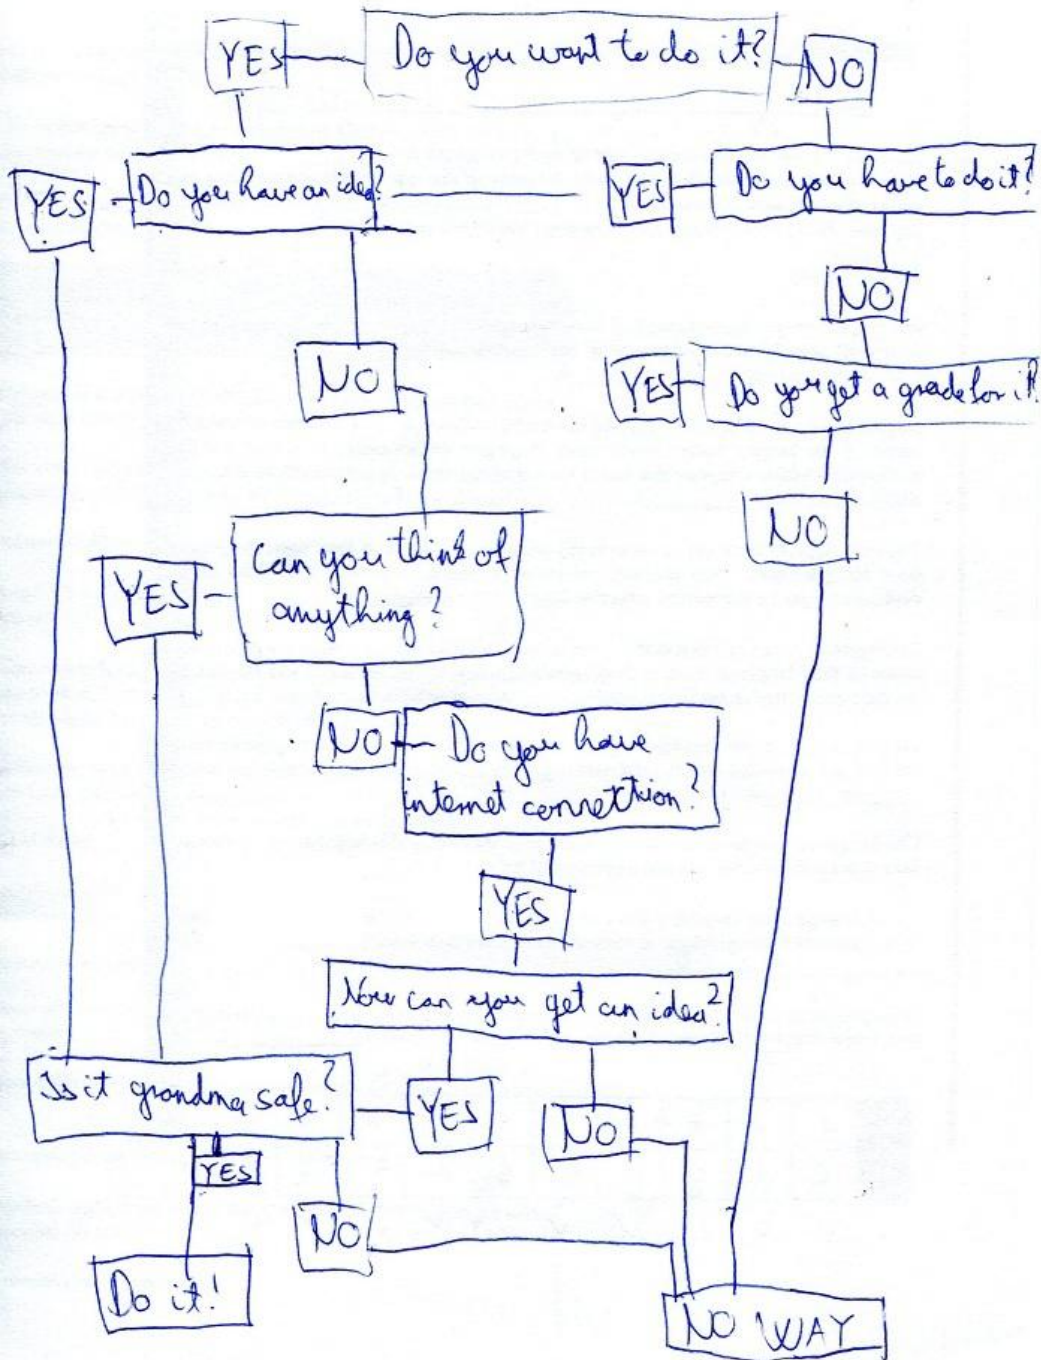 YES
Do you want to do it?
NO
YES
Do you have an idea?
YES
Do you have to do it?
NO
NO
YES
Do you get a grade for it?
NO
YES
Can you think of
anything?
NO
Do you have
internet connettion?
YES
Now can you get an idea?
Is it grandma safe?
YES
NO
YES
NO
Do it!
NO WAY